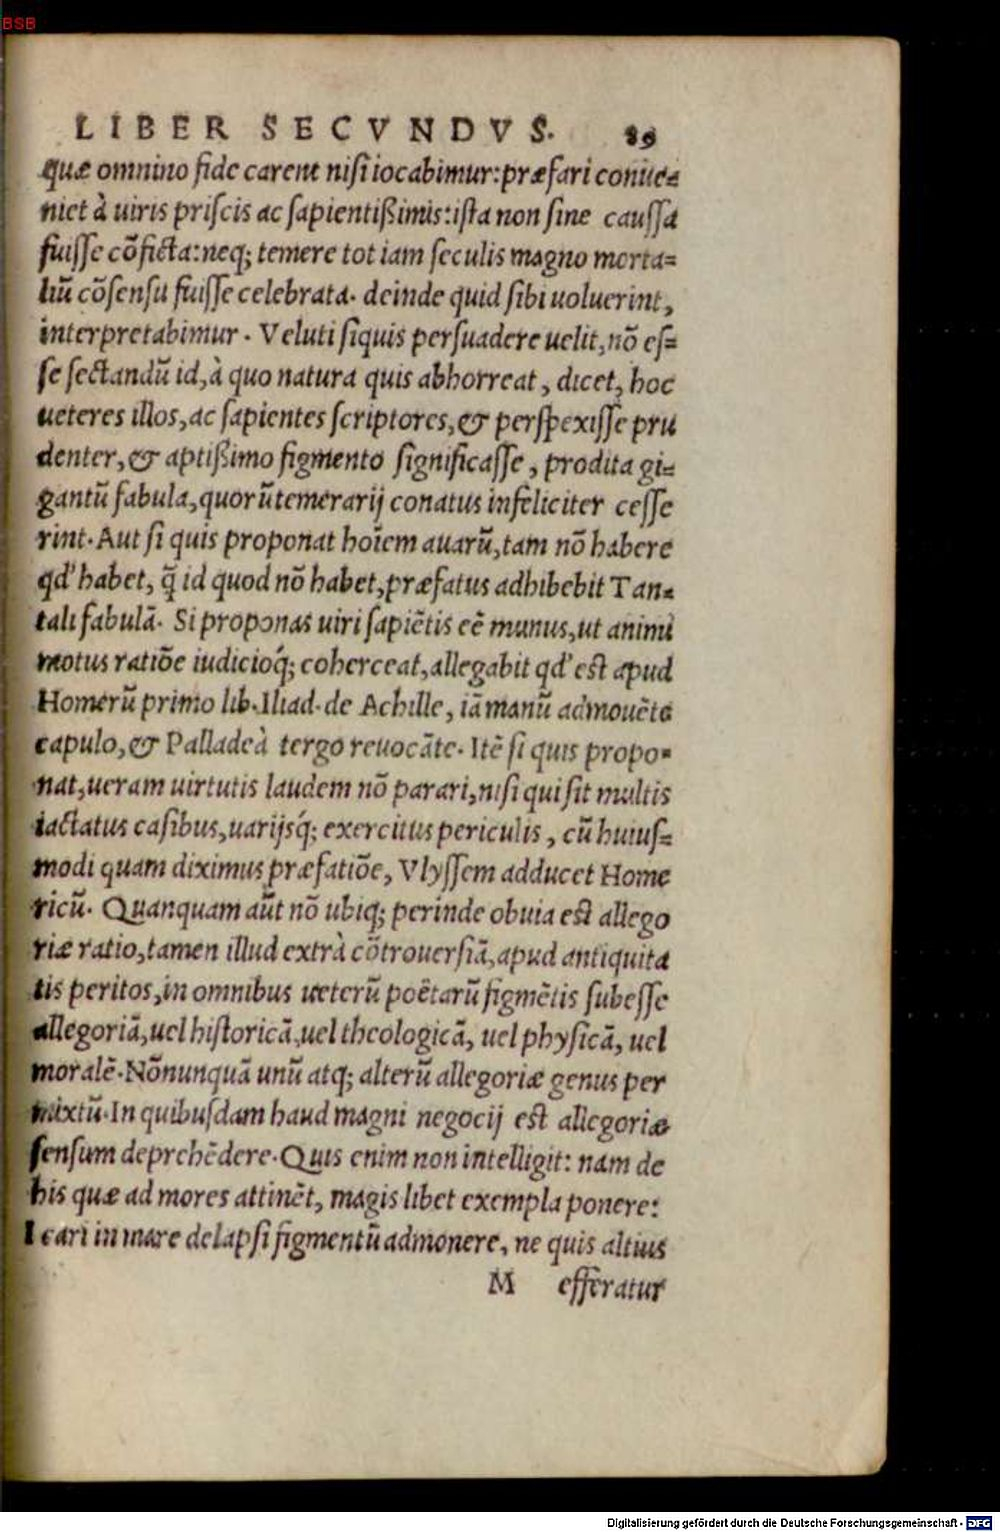 BSB
LIBER SECVNDVS. 89
quæ omnino fide carent nisi iocabimur: præfari conue=
niet à uiris priscis ac sapientißimis: ista non sine caussa
fuisse cõficta: neq; temere tot iam seculis magno morta=
liũ cõsensu fuisse celebrata. deinde quid sibi uoluerint,
interpretabimur. Veluti siquis persuadere uelit, nõ es=
se sectandũ id, à quo natura quis abhorreat, dicet, hoc
ueteres illos, ac sapientes scriptores, & perspexisse pru
denter, & aptißimo figmento significasse, prodita gi=
gantũ fabula, quorũ temerarij conatus infeliciter cesse
rint. Aut si quis proponat hoĩem auarũ, tam nõ habere
qd' habet, q̃ id quod nõ habet, præfatus adhibebit Tan=
tali fabulã. Si proponas uiri sapiẽtis eẽ munus, ut animi
motus ratiõe iudicioq́; coherceat, allegabit qd' est apud
Homerũ primo lib. Iliad. de Achille, iã manũ admouẽte
capulo, & Palladeà tergo reuocãte. Itẽ si quis propo=
nat, ueram uirtutis laudem nõ parari, nisi qui sit multis
iactatus casibus, uarijsq́; exercitus periculis, cũ huius=
modi quam diximus præfatiõe, Vlyssem adducet Home
ricũ. Quanquam aũt nõ ubiq; perinde obuia est allego
riæ ratio, tamen illud extrà cõtrouersiã, apud antiquita
tis peritos, in omnibus ueterũ poëtarũ figmẽtis subesse
allegoriã, uel historicã, uel theologicã, uel physicã, uel
moralẽ. Nõnunquã unũ atq; alterũ allegoriæ genus per
mixtũ. In quibusdam haud magni negocij est allegoriæ
sensum deprehẽdere. Quis enim non intelligit: nam de
his quæ ad mores attinẽt, magis libet exempla ponere:
Icari in mare delapsi figmentũ admonere, ne quis altius
M efferatur
Digitalisierung gefördert durch die Deutsche Forschungsgemeinschaft - DFG